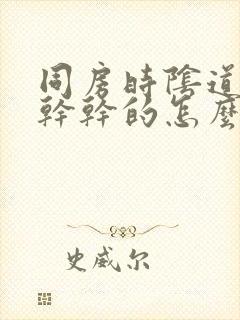 同房時陰道
幹幹的怎麼
史威尔